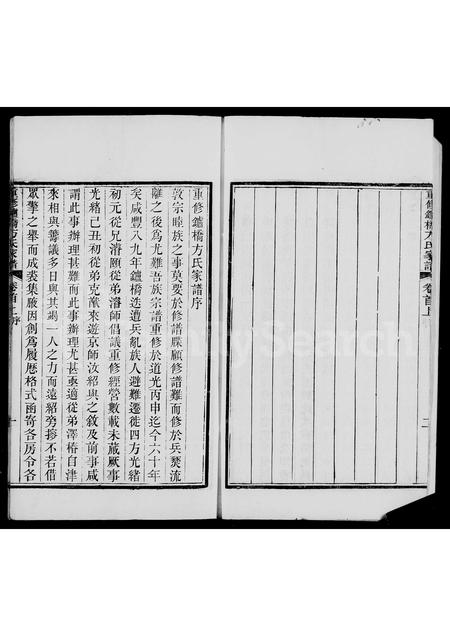 重修鑪橋方氏家譜
卷首上
二
重修鑪橋方氏家譜序
敦宗睦族之事莫要於修譜牒顧修譜難而修於兵燹流
離之後為尤難吾族宗譜重修於道光丙申迄今六十年
矣咸豐八九年鑪橋迭遭兵亂族人避難遷徙四方光緒
初元從兄濬頤從弟濬師倡議重修經營數載未蕆厥事
光緒己丑初從弟克猷來遊京師汝紹與之敘及前事咸
謂此事辦理甚難而此事辦理尤甚亟適從弟澤椿自津
來相與籌議多日與其竭一人之力而遠紹旁搜不若借
眾擎之舉而成裘集厥因創為履歷格式函寄各房令各
重修鑪橋方氏家譜
卷首上序